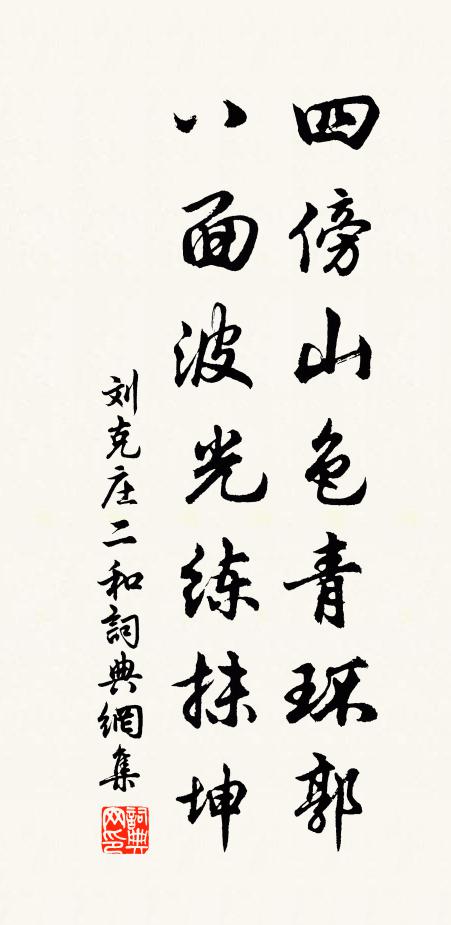 四傍山色青环郭
八面波光练抹坤
刘克庄二和詞典網集
詞典网印